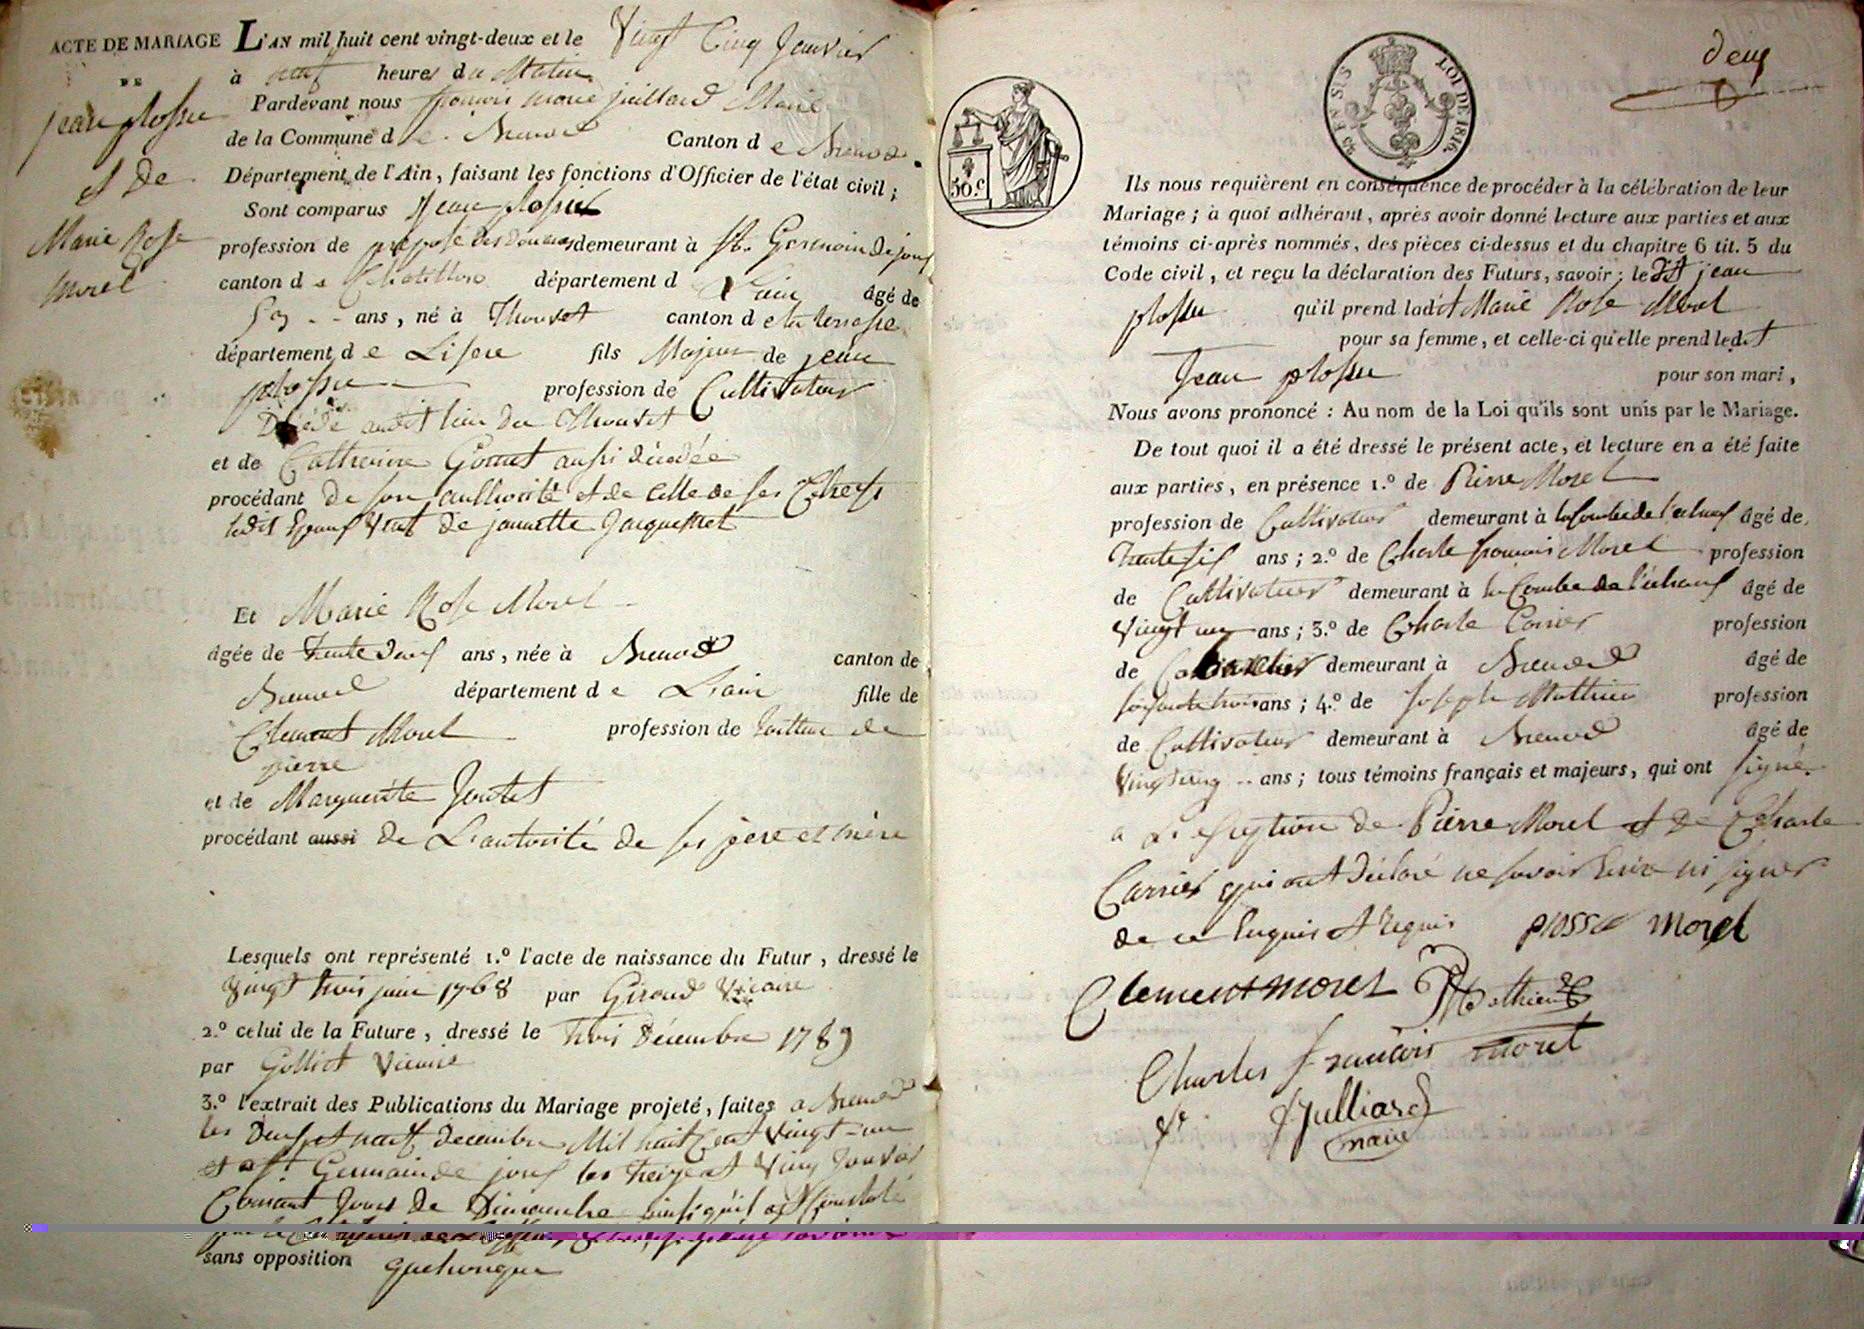 ACTE DE MARIAGE
DE
jean plossu
et de
Marie Rose
morel
L'AN mil huit cent vingt-deux et le Vingt Cinq Janvier
à neuf heures du Matin
Pardevant nous françois marie juillard Maire
de la Commune de Brenod Canton de Brenod
Département de l'Ain, faisant les fonctions d'Officier de l'état civil ;
Sont comparus Jean plossu
profession de préposé des douanes demeurant à St. Germain de joux
canton de Chatillon département d L'ain âgé de
53 - - ans, né à Thouvet canton de la terrasse
département de L'isere fils Majeur de jean
plossu profession de Cultivateur
Décédé audit lieu du Thouvet
et de Catherine Gomet aussi décédée
procédant de son authorité et de celle de ses Chefs
ledit Epoux Veuf de jannette Jacquemet
Et Marie Rose Morel
âgée de trente deux ans, née à Brenod canton de
Brenod département de L'ain fille de
Clement Morel profession de tailleur de
pierre
et de Marguerite Joutet
procédant aussi de L'autorité de ses père et mère
Lesquels ont représenté 1.º l'acte de naissance du Futur, dressé le
Vingt trois juin 1768 par Giroud Vicaire
2.º celui de la Future, dressé le trois Décembre 1789
par Golliet Vicaire
3.º l'extrait des Publications du Mariage projeté, faites a Brenod
les Deux et neuf decembre Mil huit Cent Vingt-un
et a St. Germain de joux les treize et Vingt Janvier
Courant Jours de Dimanche ainsi qu'il est Constaté
sans opposition quelconque
deux
50.c
45 EN SUS
LOI DE 1816.
Ils nous requièrent en conséquence de procéder à la célébration de leur
Mariage ; à quoi adhérant, après avoir donné lecture aux parties et aux
témoins ci-après nommés, des pièces ci-dessus et du chapitre 6 tit. 5 du
Code civil, et reçu la déclaration des Futurs, savoir : le dit jean
plossu qu'il prend ladit Marie Rose Morel
pour sa femme, et celle-ci qu'elle prend ledit
Jean plossu pour son mari,
Nous avons prononcé : Au nom de la Loi qu'ils sont unis par le Mariage.
De tout quoi il a été dressé le présent acte, et lecture en a été faite
aux parties, en présence 1.º de Pierre Morel
profession de Cultivateur demeurant à la Combe de l'echaux âgé de
trente six ans ; 2.º de Charle françois Morel profession
de Cultivateur demeurant à la Combe de l'echaux âgé de
Vingt un ans ; 3.º de Charle Carrier profession
de demeurant à Brenod âgé de
soixante trois ans ; 4.º de Joseph Mathieu profession
de Cultivateur demeurant à Brenod âgé de
Vingt cinq - - ans ; tous témoins français et majeurs, qui ont signé
a L'exception de Pierre Morel et de Charle
Carrier qui ont déclaré ne savoir Ecrire ni signer
de ce Enquis et Requis plossu morel
Clement morel Mathieu
Charles francois morel
Julliard
maire